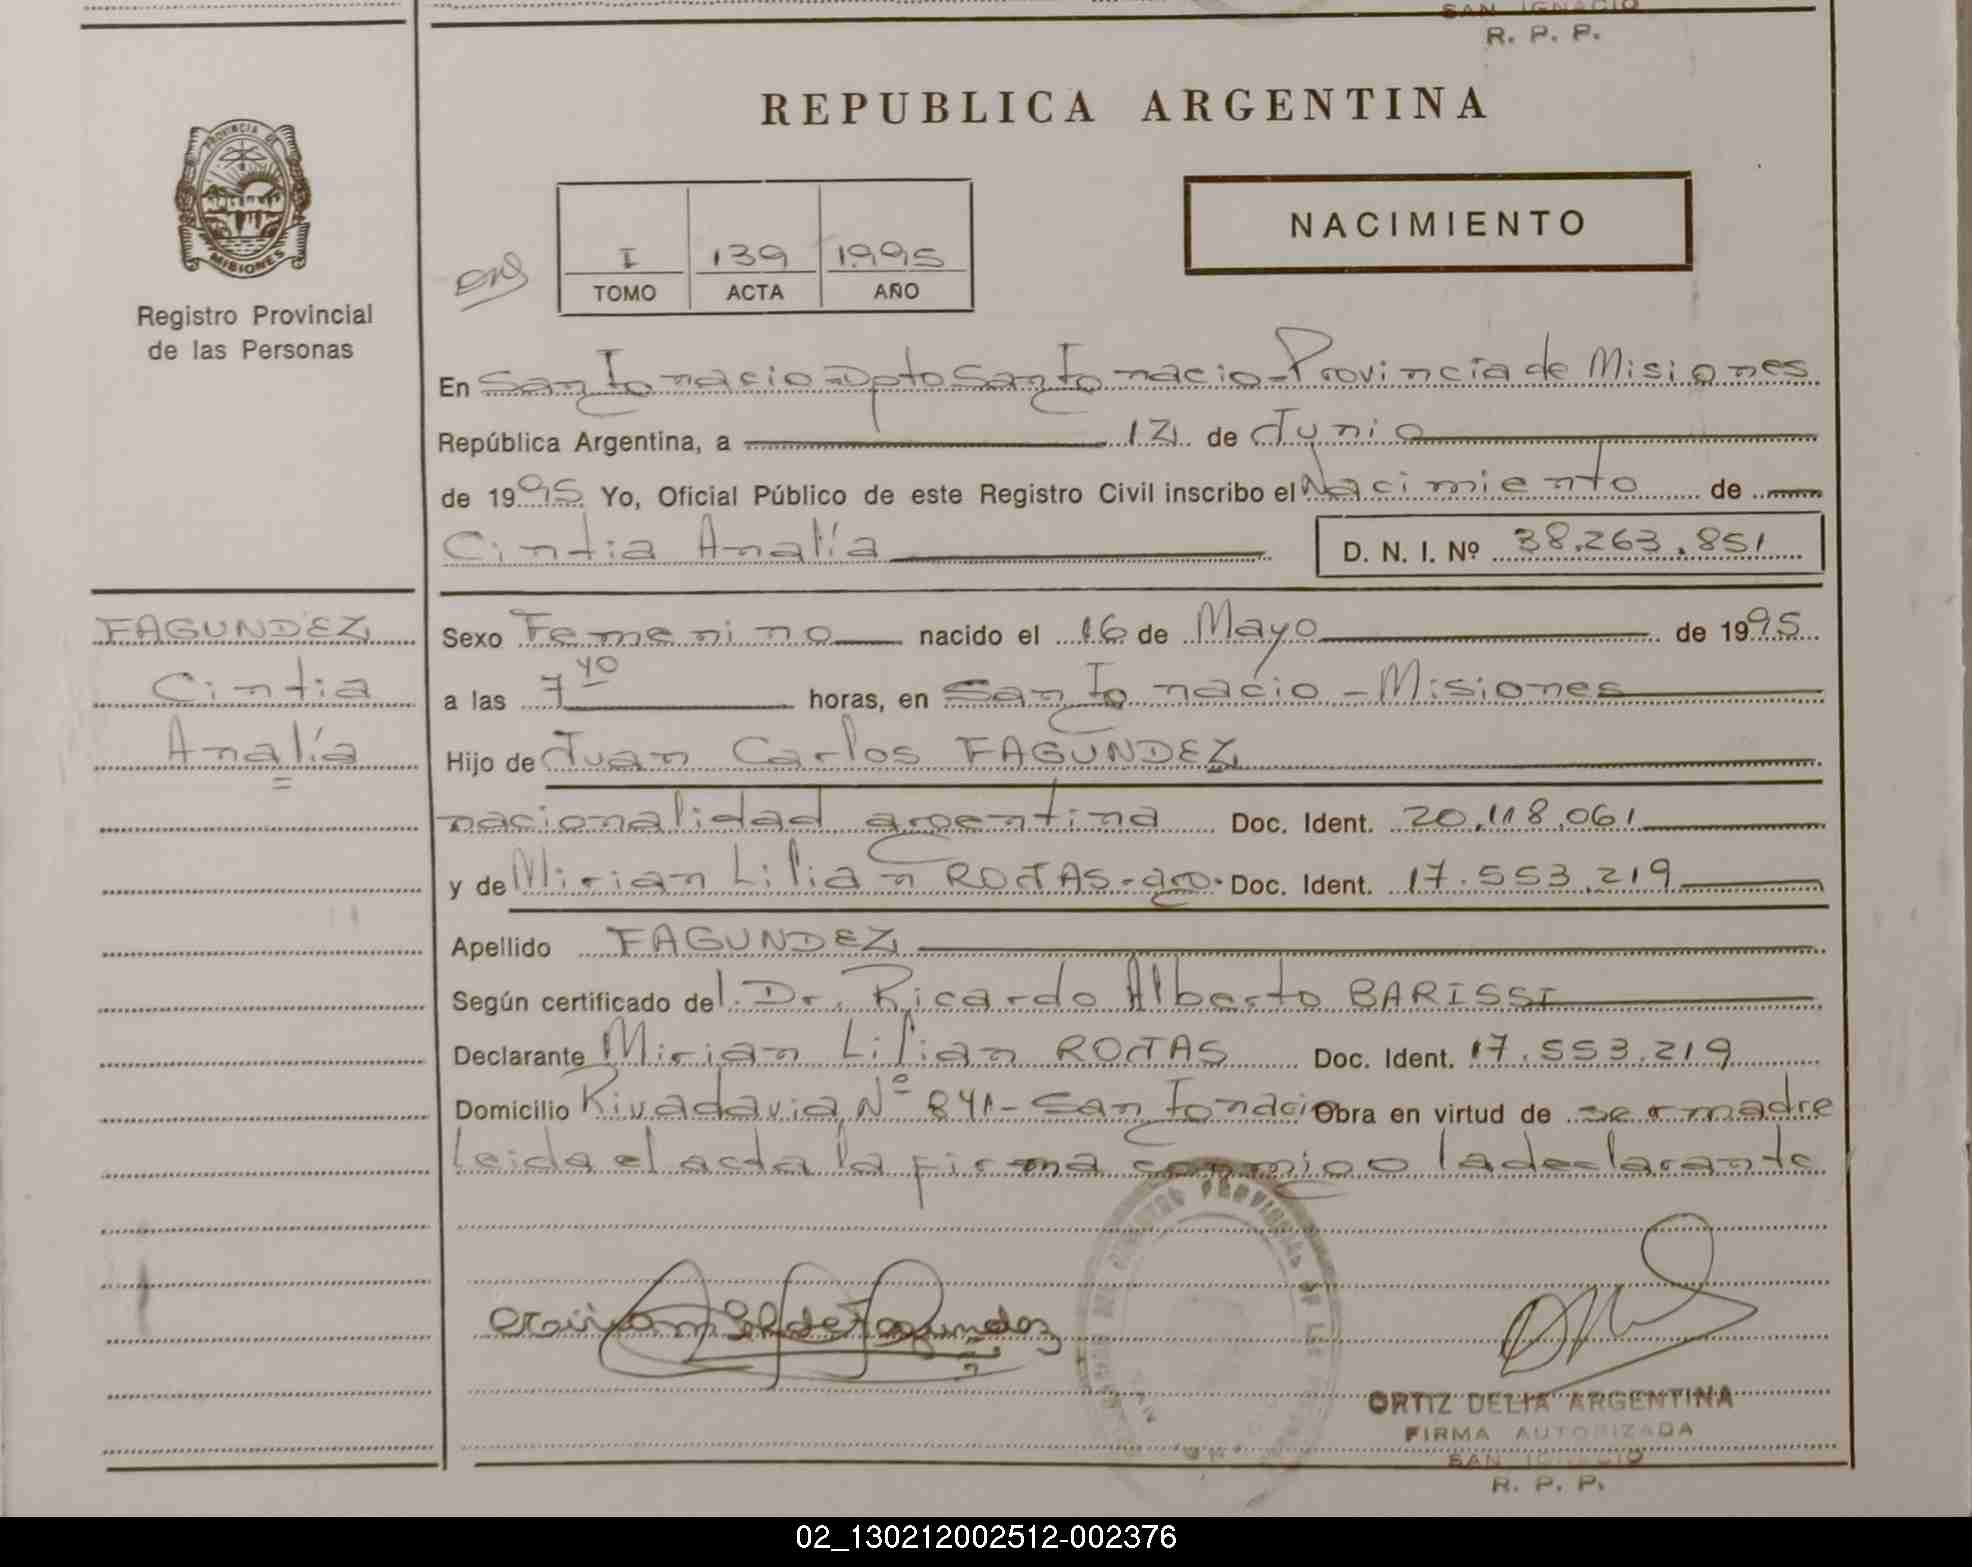 SAN IGNACIO
R. P. P.
REPUBLICA ARGENTINA
PROVINCIA DE
MISIONES
Registro Provincial
de las Personas
I 139 1995
TOMO ACTA AÑO
NACIMIENTO
En San Ignacio-Dpto San Ignacio-Provincia de Misiones
República Argentina, a 12 de Junio
de 1995 Yo, Oficial Público de este Registro Civil inscribo el Nacimiento de
Cintia Analía D. N. I. Nº 38.263.851
FAGUNDEZ
Cintia
Analía
Sexo Femenino nacido el 16 de Mayo de 1995
a las 7 40 horas, en San Ignacio - Misiones
Hijo de Juan Carlos FAGUNDEZ
nacionalidad argentina Doc. Ident. 20.118.061
y de Mirian Lilian ROJAS-arg. Doc. Ident. 17.553.219
Apellido FAGUNDEZ
Según certificado del Dr. Ricardo Alberto BARISSI
Declarante Mirian Lilian ROJAS Doc. Ident. 17.553.219
Domicilio Rivadavia Nº 841- San Ignacio Obra en virtud de ser madre
Leida el acta la firma conmigo la declarante
ORTIZ DELIA ARGENTINA
FIRMA AUTORIZADA
SAN IGNACIO
R. P. P.
02_130212002512-002376